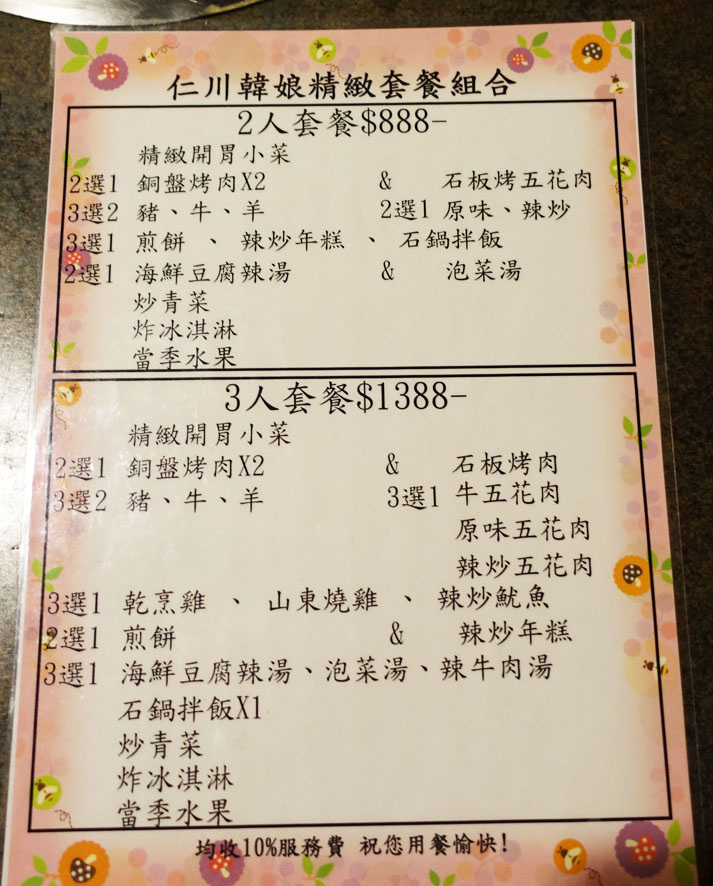 仁川韓娘精緻套餐組合
2人套餐$888-
精緻開胃小菜
2選1 銅盤烤肉X2 & 石板烤五花肉
3選2 豬、牛、羊 2選1 原味、辣炒
3選1 煎餅 、 辣炒年糕 、 石鍋拌飯
2選1 海鮮豆腐辣湯 & 泡菜湯
炒青菜
炸冰淇淋
當季水果
3人套餐$1388-
精緻開胃小菜
2選1 銅盤烤肉X2 & 石板烤肉
3選2 豬、牛、羊 3選1 牛五花肉
原味五花肉
辣炒五花肉
3選1 乾烹雞 、 山東燒雞 、 辣炒魷魚
2選1 煎餅 & 辣炒年糕
3選1 海鮮豆腐辣湯、泡菜湯、辣牛肉湯
石鍋拌飯X1
炒青菜
炸冰淇淋
當季水果
均收10%服務費 祝您用餐愉快!